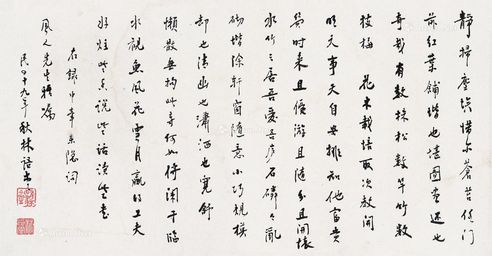 靜掃塵埃惜尔蒼苔任門
前紅葉鋪堦也堪圖畫還也
奇哉有數株松數竿竹數
枝梅 花木栽培取次教開
明天事天自安排知他富貴
幾時來且優游且隨分且開懷
水竹之居吾愛吾廬石磷々亂
砌堦除軒窗隨意小巧規模
卻也清幽也瀟洒也寬舒
懶散無拘此等何如倚闌干臨
水觀魚風花雪月贏得工夫
好炷些香說些話讀些書
右錄中峯樂隱詞
風人先生雅屬
民四十九年秋林語堂